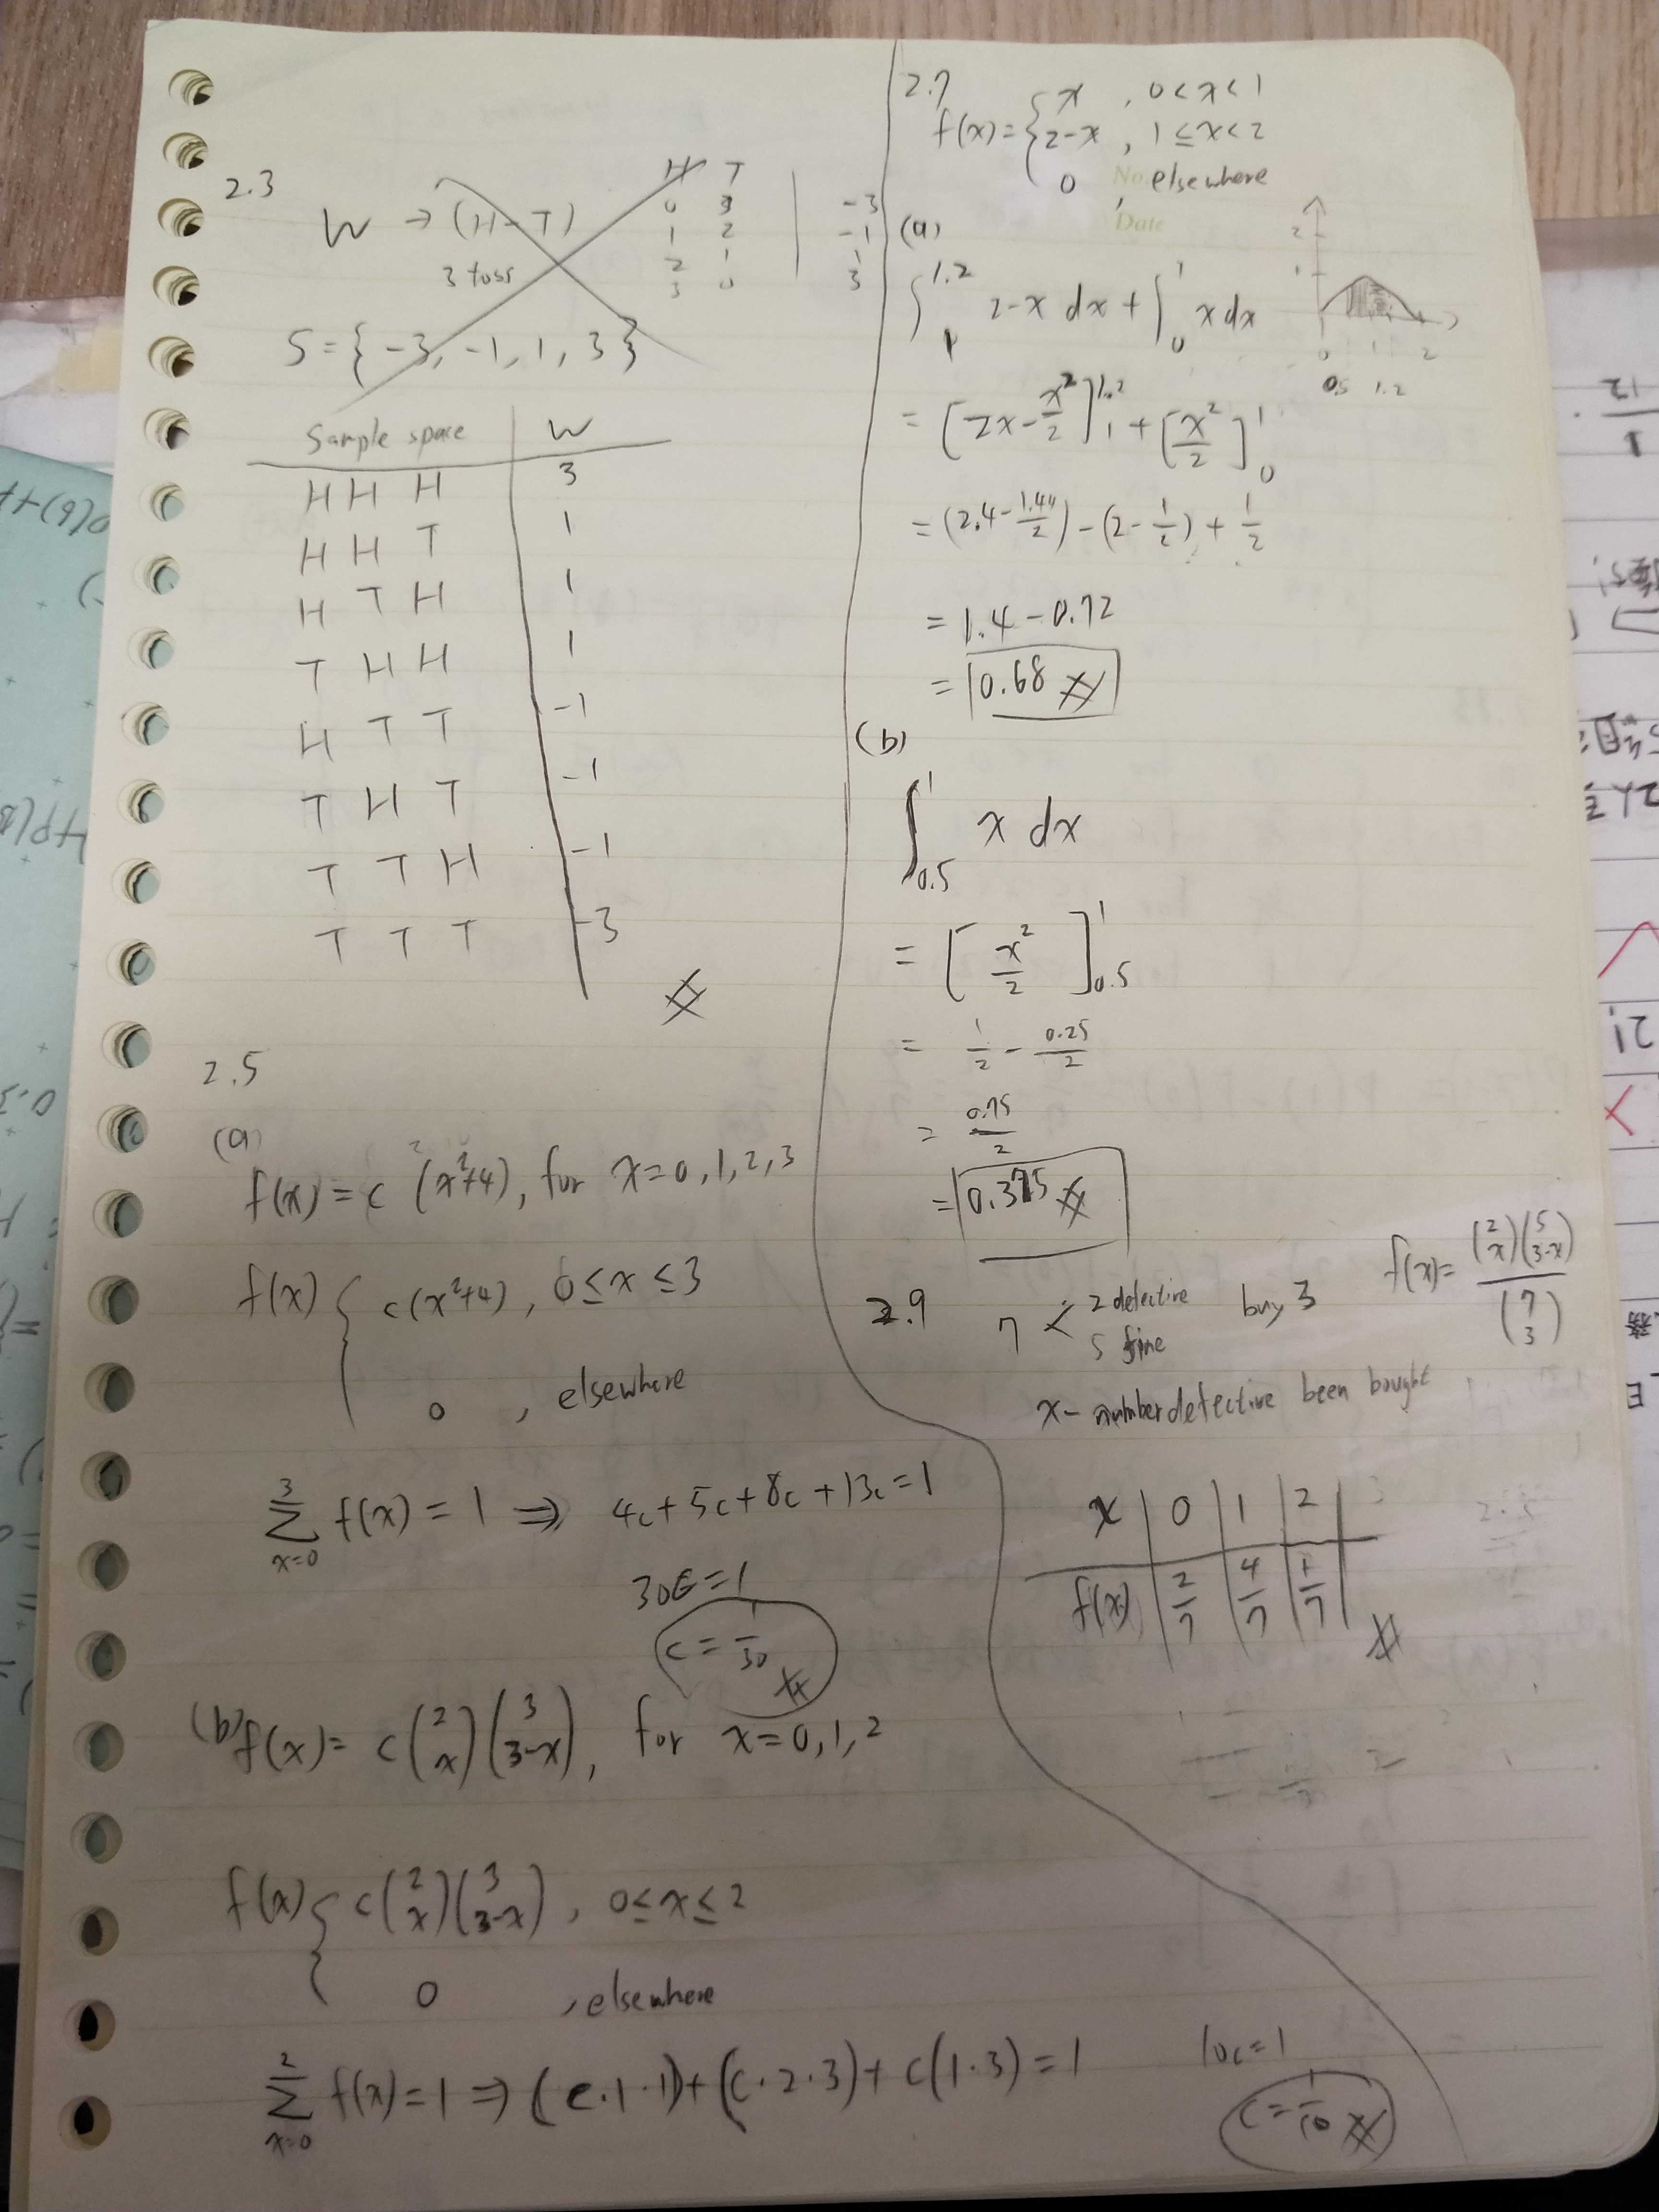 2.3
W → (H-T)
3 toss
H T
0 3 | -3
1 2 | -1
2 1 | 1
3 0 | 3
S = { -3, -1, 1, 3 }
Sample space | W
H H H | 3
H H T | 1
H T H | 1
T H H | 1
H T T | -1
T H T | -1
T T H | -1
T T T | -3
2.5
(a)
f(x) = c (x²+4), for x=0,1,2,3
f(x) { c(x²+4), 0≤x≤3
0 , elsewhere
∑_{x=0}^{3} f(x) = 1 ⇒ 4c+5c+8c+13c=1
30c=1
c = 1/30
(b) f(x) = c (2 x) (3 3-x), for x=0,1,2
f(x) { c (2 x) (3 3-x), 0≤x≤2
0 , elsewhere
∑_{x=0}^{2} f(x) = 1 ⇒ (c·1·1)+(c·2·3)+c(1·3)=1
10c=1
c = 1/10
2.7
f(x) = { x , 0<x<1
2-x , 1≤x<2
0 , elsewhere
No.
Date
(a)
2
1
0 1 2
0.5 1.2
∫_1^{1.2} 2-x dx + ∫_0^1 x dx
= [2x - x²/2]_1^{1.2} + [x²/2]_0^1
= (2.4 - 1.44/2) - (2 - 1/2) + 1/2
= 1.4 - 0.72
= 0.68
(b)
∫_{0.5}^1 x dx
= [x²/2]_{0.5}^1
= 1/2 - 0.25/2
= 0.75/2
= 0.375
2.9
7 < 2 defective
5 fine
buy 3
f(x) = (2 x)(5 3-x) / (7 3)
x - number defective been bought
x | 0 | 1 | 2 |
f(x) | 2/7 | 4/7 | 1/7 |